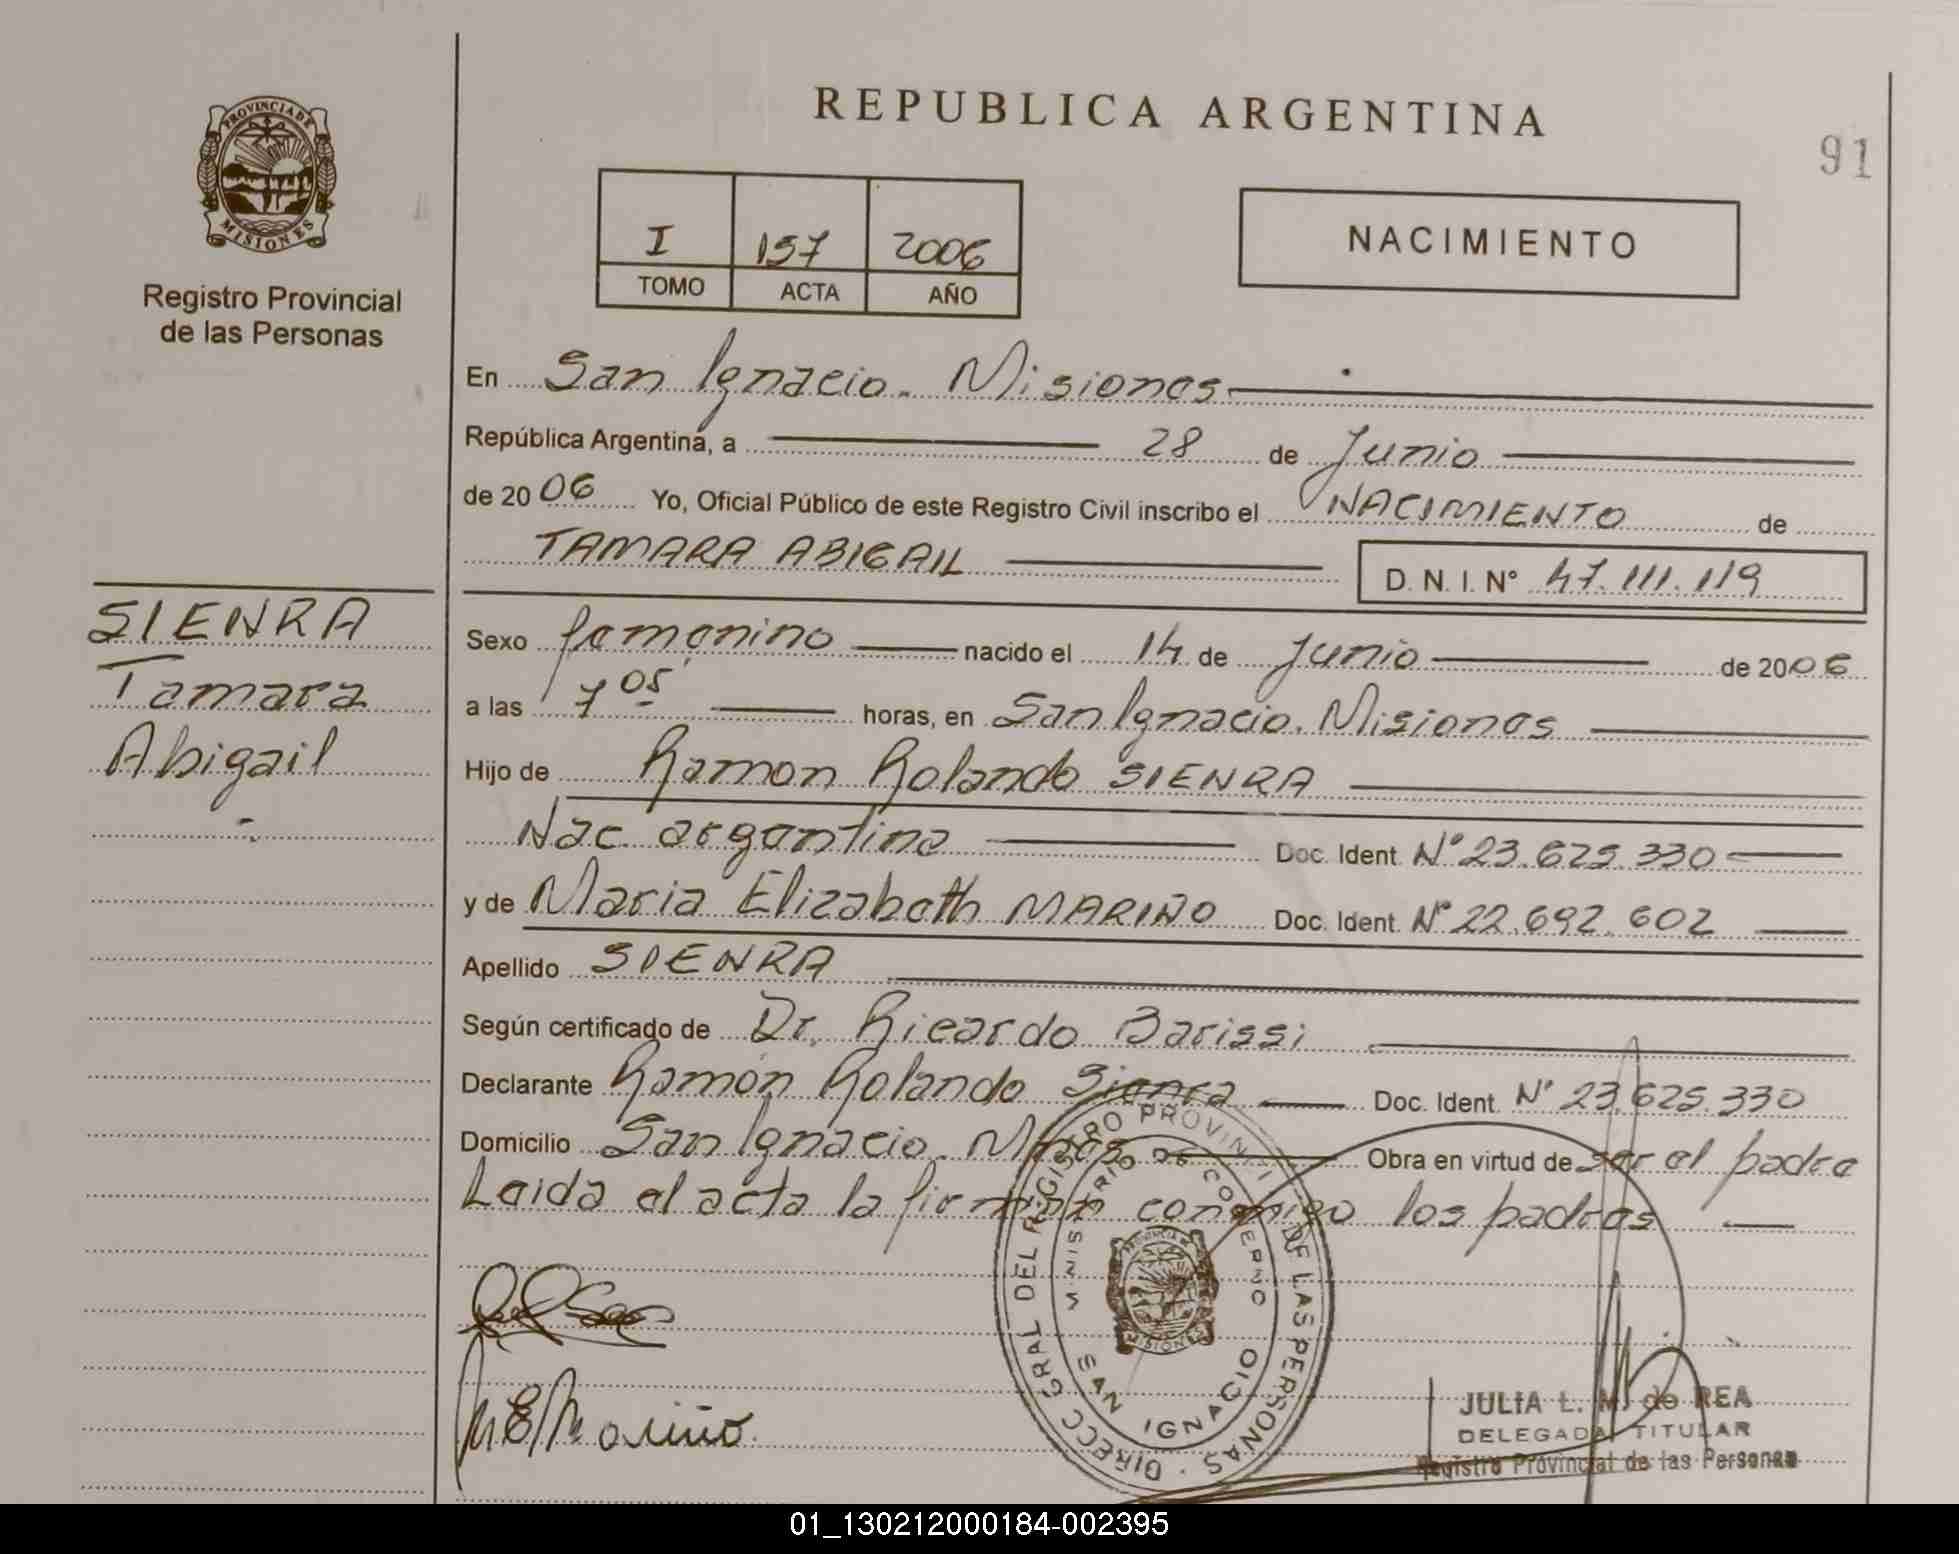 PROVINCIA DE
MISIONES
Registro Provincial
de las Personas
REPUBLICA ARGENTINA
91
I 157 2006
TOMO ACTA AÑO
NACIMIENTO
En San Ignacio. Misiones
República Argentina, a 28 de Junio
de 2006 Yo, Oficial Público de este Registro Civil inscribo el NACIMIENTO de
TAMARA ABIGAIL D. N. I. N° 47.111.119
SIENRA
Tamara
Abigail
Sexo femenino nacido el 14 de Junio de 2006
a las 7 05 horas, en San Ignacio. Misiones
Hijo de Ramon Rolando SIENRA
Nac. argentina Doc. Ident. N° 23.625.330
y de Maria Elizabeth MARIÑO Doc. Ident. N° 22.692.602
Apellido SIENRA
Según certificado de Dr. Ricardo Barissi
Declarante Ramón Rolando Sienra Doc. Ident. N° 23.625.330
Domicilio San Ignacio. Mnes Obra en virtud de ser el padre
Leida el acta la firman conmigo los padres
DIRECC GRAL DEL REGISTRO PROVINCIAL DE LAS PERSONAS
MINISTERIO DE GOBIERNO
PROVINCIA DE
MISIONES
SAN IGNACIO
M E Mariño
JULIA L. M. de REA
DELEGADA TITULAR
Registro Provincial de las Personas
01_130212000184-002395